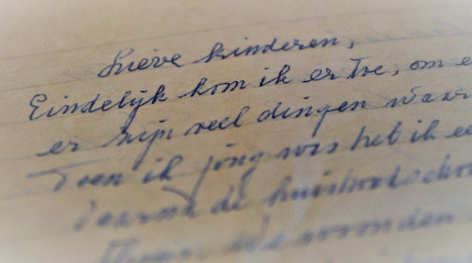 Lieve kinderen,
Eindelijk kom ik er toe, om e
er zijn veel dingen waar
Toen ik jong was heb ik ee
daarna de huishoudscho
wonden